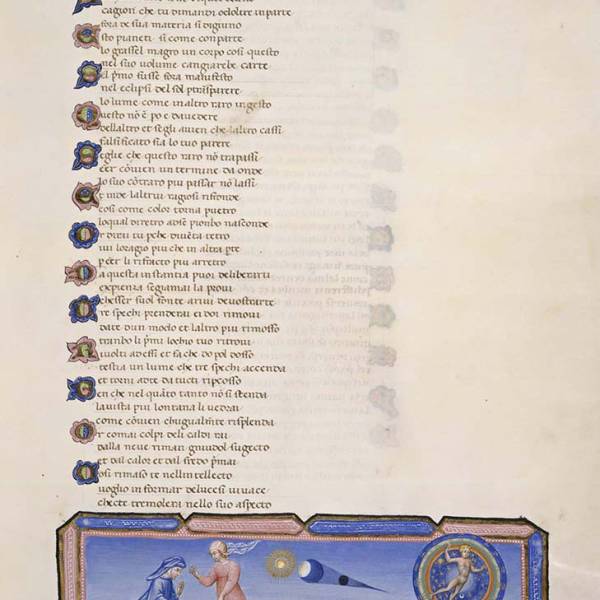 cagion che tu dimandi od oltre in parte
fora de sua materia si digiuno
sto pianeti si come conparte
lo grassel magro un corpo cosi questo
nel suo volume cangiarebe carte
el pmo fusse fora manifesto
nel eclipsi del sol ptrasparere
lo lume come in altro raro ingesto
uesto nō ē po e da vedere
dellaltro et segli avien che laltro cassi
falsificato fia lo tuo parere
eglie che questo raro nō trapassi
eēr cōvien un termine da onde
lo suo cōtraro piu passar nō lassi
t inde laltrui ragiosi rifonde
cosi come color torna puetro
loqual diretro adse pionbo nasconde
r dirai tu pche diventa tetro
ivi loragio piu che in altra pte
p eēr li rifracto piu arretro
a questa instantia puor deliberarti
expienza segiamai la provi
chesser suol fonte arivi devostrarte
re spechi prenderai ei doi rimovi
date dun modo et laltro piu rimosso
trambo li pmi lochio tuo ritrovi
ivolti adessi et fa che do pol dosso
testia un lume che tre spechi accenda
et torni adte da tucti ripcosso
en che nel quāto tanto nō si stenda
la vista piu lontana li vedrai
come cōvien chugualmēte risplenda
r comai colpi deli caldi rai
dalla neve riman gnudol sugecto
et dal calor et dal fredo pmai
osi rimaso te nellintellecto
voglio informar deluce si vivace
chette tremolera nello suo aspecto